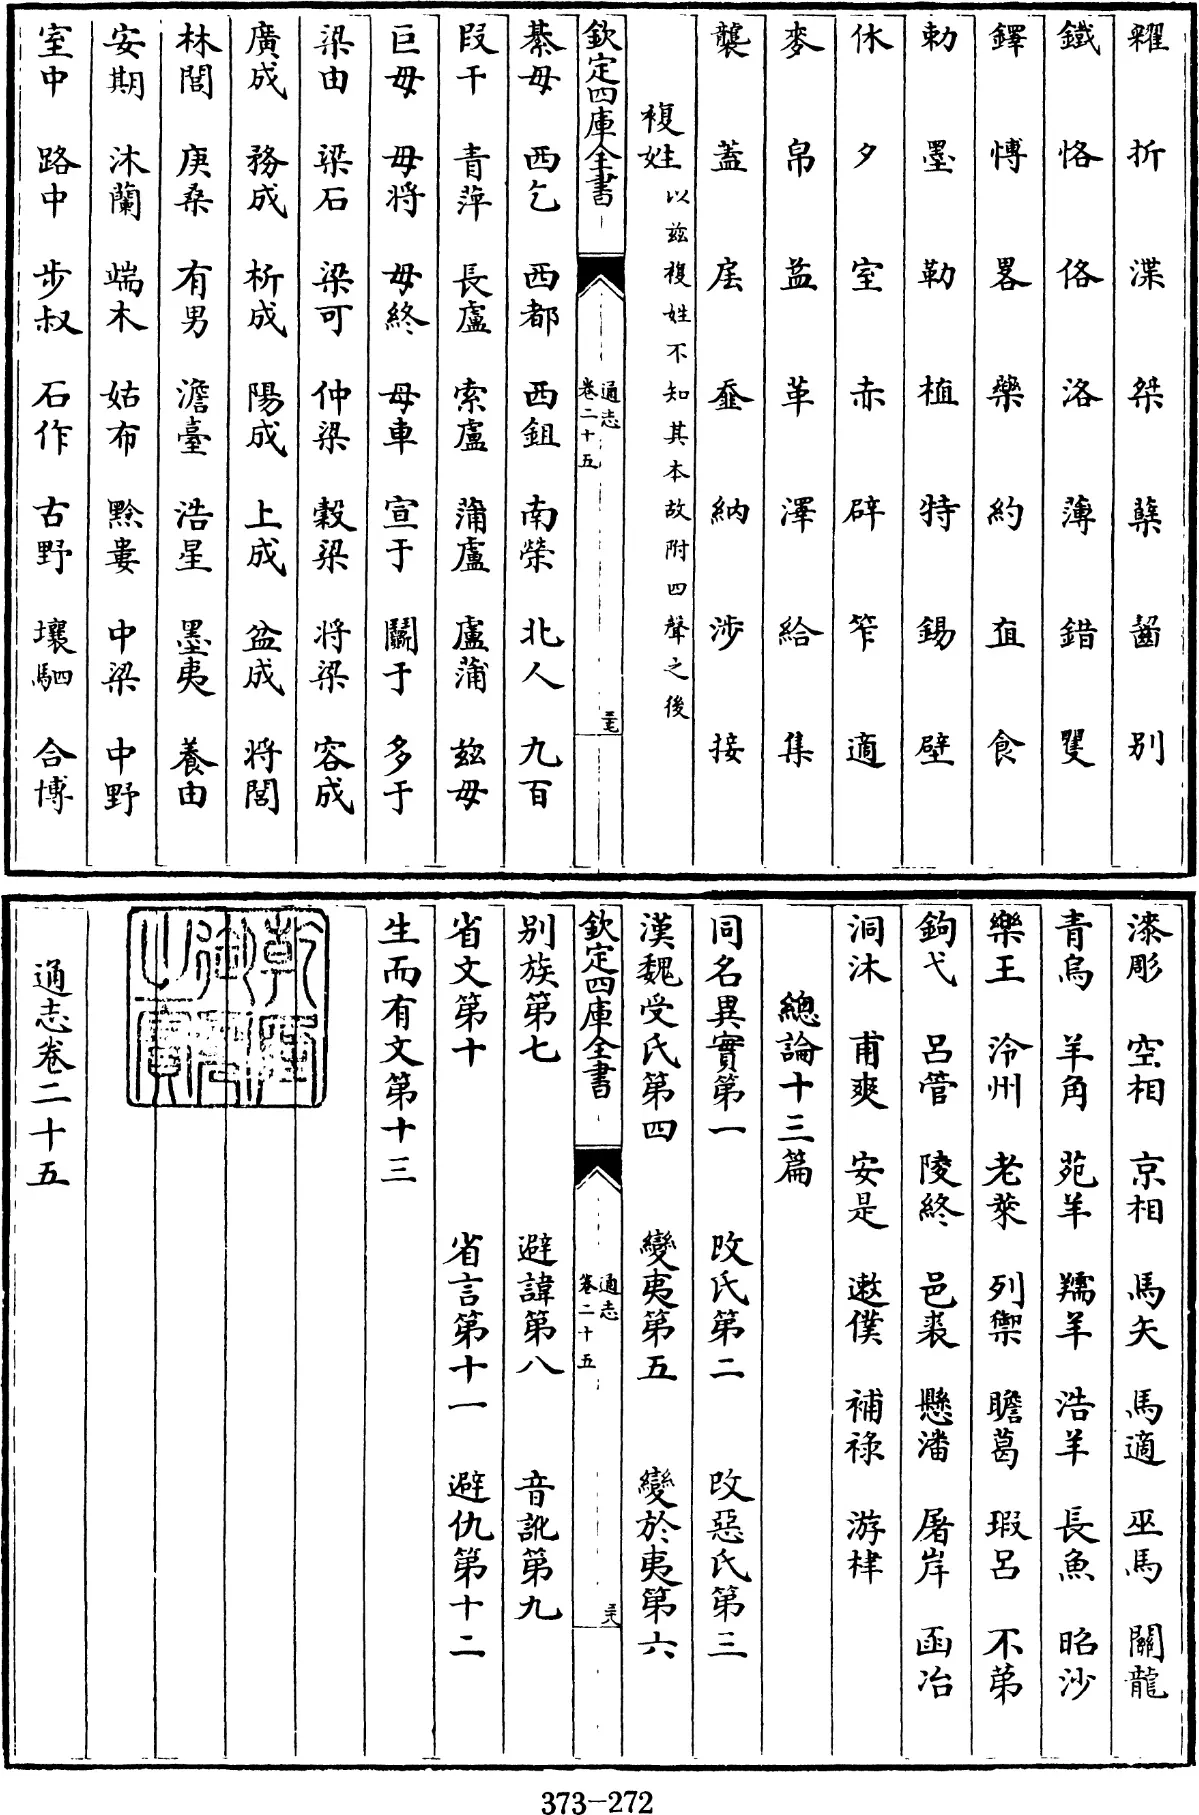 糶 折 渫 桀 蘖 齧 别
鐵 恪 佫 洛 薄 錯 矍
鐸 愽 畧 藥 約 直 食
勅 墨 勒 植 特 錫 壁
休 夕 室 赤 辟 笮 適
麥 帛 益 革 澤 給 集
襲 蓋 厺 納 涉 接
複姓 以兹複姓不知其本故附四聲之後
欽定四庫全書 通志 卷二十五 三七
綦毋 西乞 西都 西鉏 南榮 北人 九百
段干 青萍 長盧 索盧 蒲盧 盧蒲 兹毋
巨毋 毋將 毋終 毋車 宣于 闞于 多于
梁由 梁石 梁可 仲梁 穀梁 將梁 容成
廣成 務成 析成 陽成 上成 盆成 將閭
林閭 庚桑 有男 澹臺 浩星 墨夷 養由
安期 沐蘭 端木 姑布 黔婁 中梁 中野
室中 路中 步叔 石作 古野 壤駟 合博
漆彫 空相 京相 馬矢 馬適 巫馬 關龍
青烏 羊角 苑羊 羺羊 浩羊 長魚 昭沙
樂王 泠州 老萊 列禦 瞻葛 瑕呂 不第
鉤弋 呂管 陵終 邑裘 懸潘 屠岸 函冶
洞沐 甫爽 安是 遬僕 補祿 游棣
總論十三篇
同名異實第一 改氏第二 改惡氏第三
漢魏受氏第四 變夷第五 變於夷第六
欽定四庫全書 通志 卷二十五 三六
别族第七 避諱第八 音訛第九
省文第十 省言第十一 避仇第十二
生而有文第十三
乾隆御覽之寶
通志卷二十五
373-272